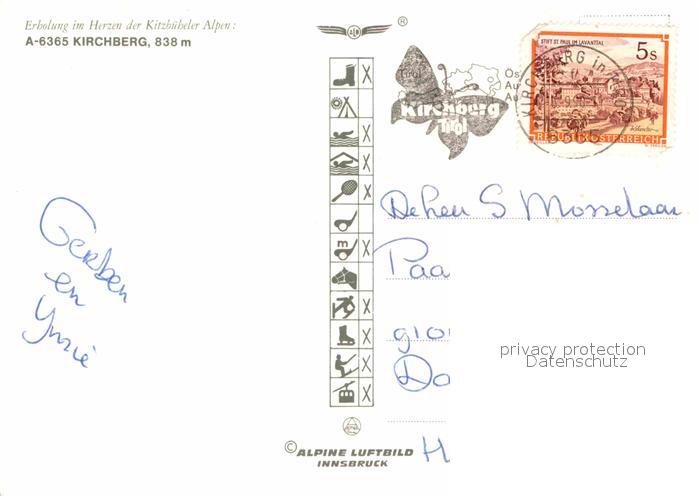 Erholung im Herzen der Kitzbüheler Alpen:
A-6365 KIRCHBERG, 838 m
®
Tirol
Kirchberg
Tirol
Ös
Au
Au
KIRCHBERG in TIROL
6365
STIFT ST. PAUL IM LAVANTTAL
5s
REPUBLIK ÖSTERREICH
De heer S Mosselaar
Paa
gio
Do
H
Gerben
en
m
privacy protection
Datenschutz
© ALPINE LUFTBILD
INNSBRUCK